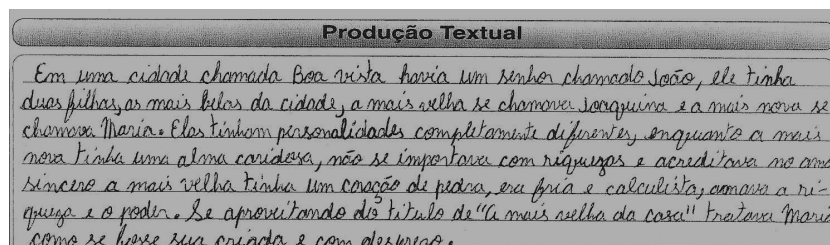 Produção Textual
Em uma cidade chamada Boa vista havia um senhor chamado João, ele tinha
duas filhas, as mais belas da cidade, a mais velha se chamava Joaquina e a mais nova se
chamava Maria. Elas tinham personalidades completamente diferentes, enquanto a mais
nova tinha uma alma caridosa, não se importava com riquezas e acreditava no amo
sincero a mais velha tinha um coração de pedra, era fria e calculista, amava a ri-
queza e o poder. Se aproveitando do título de "a mais velha da casa" tratava Maria
como se fosse sua criada e com desprezo.